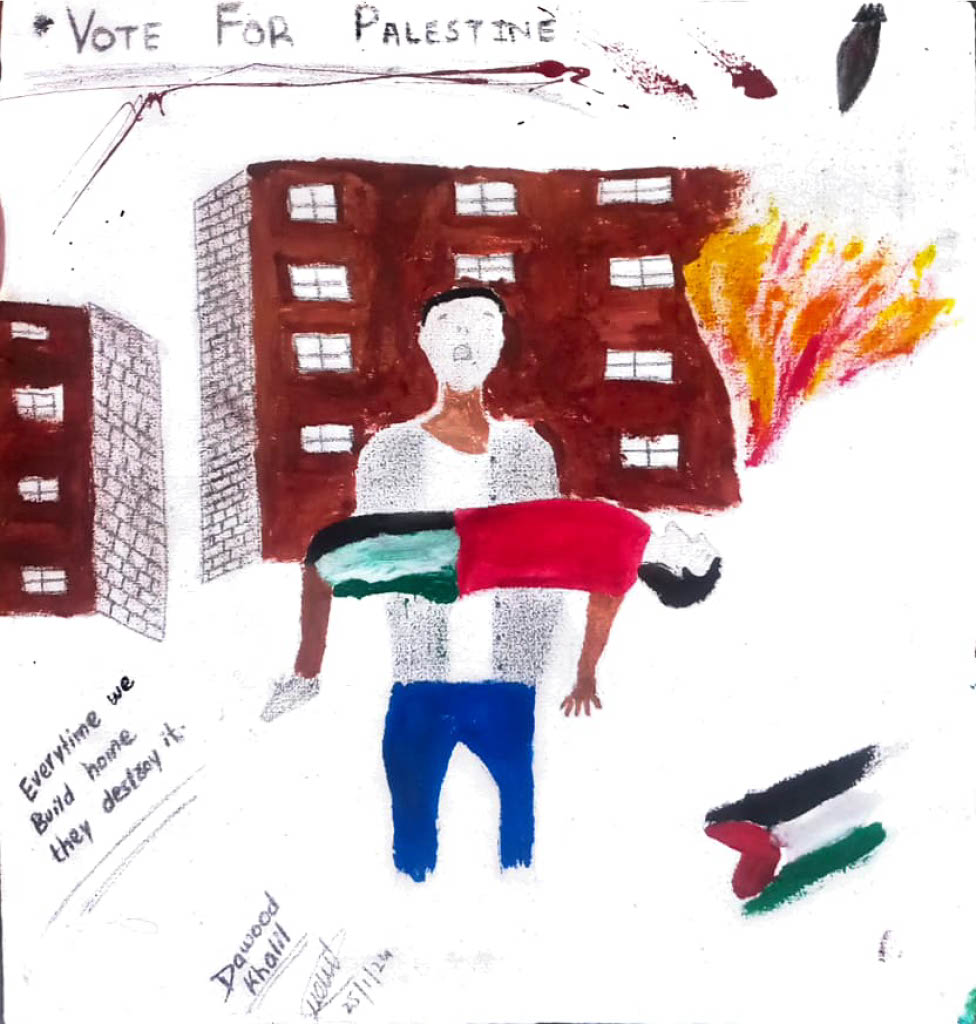 VOTE FOR PALESTINE
Everytime we
Build home
they destroy it.
Dawood
Khalil
25/1/24